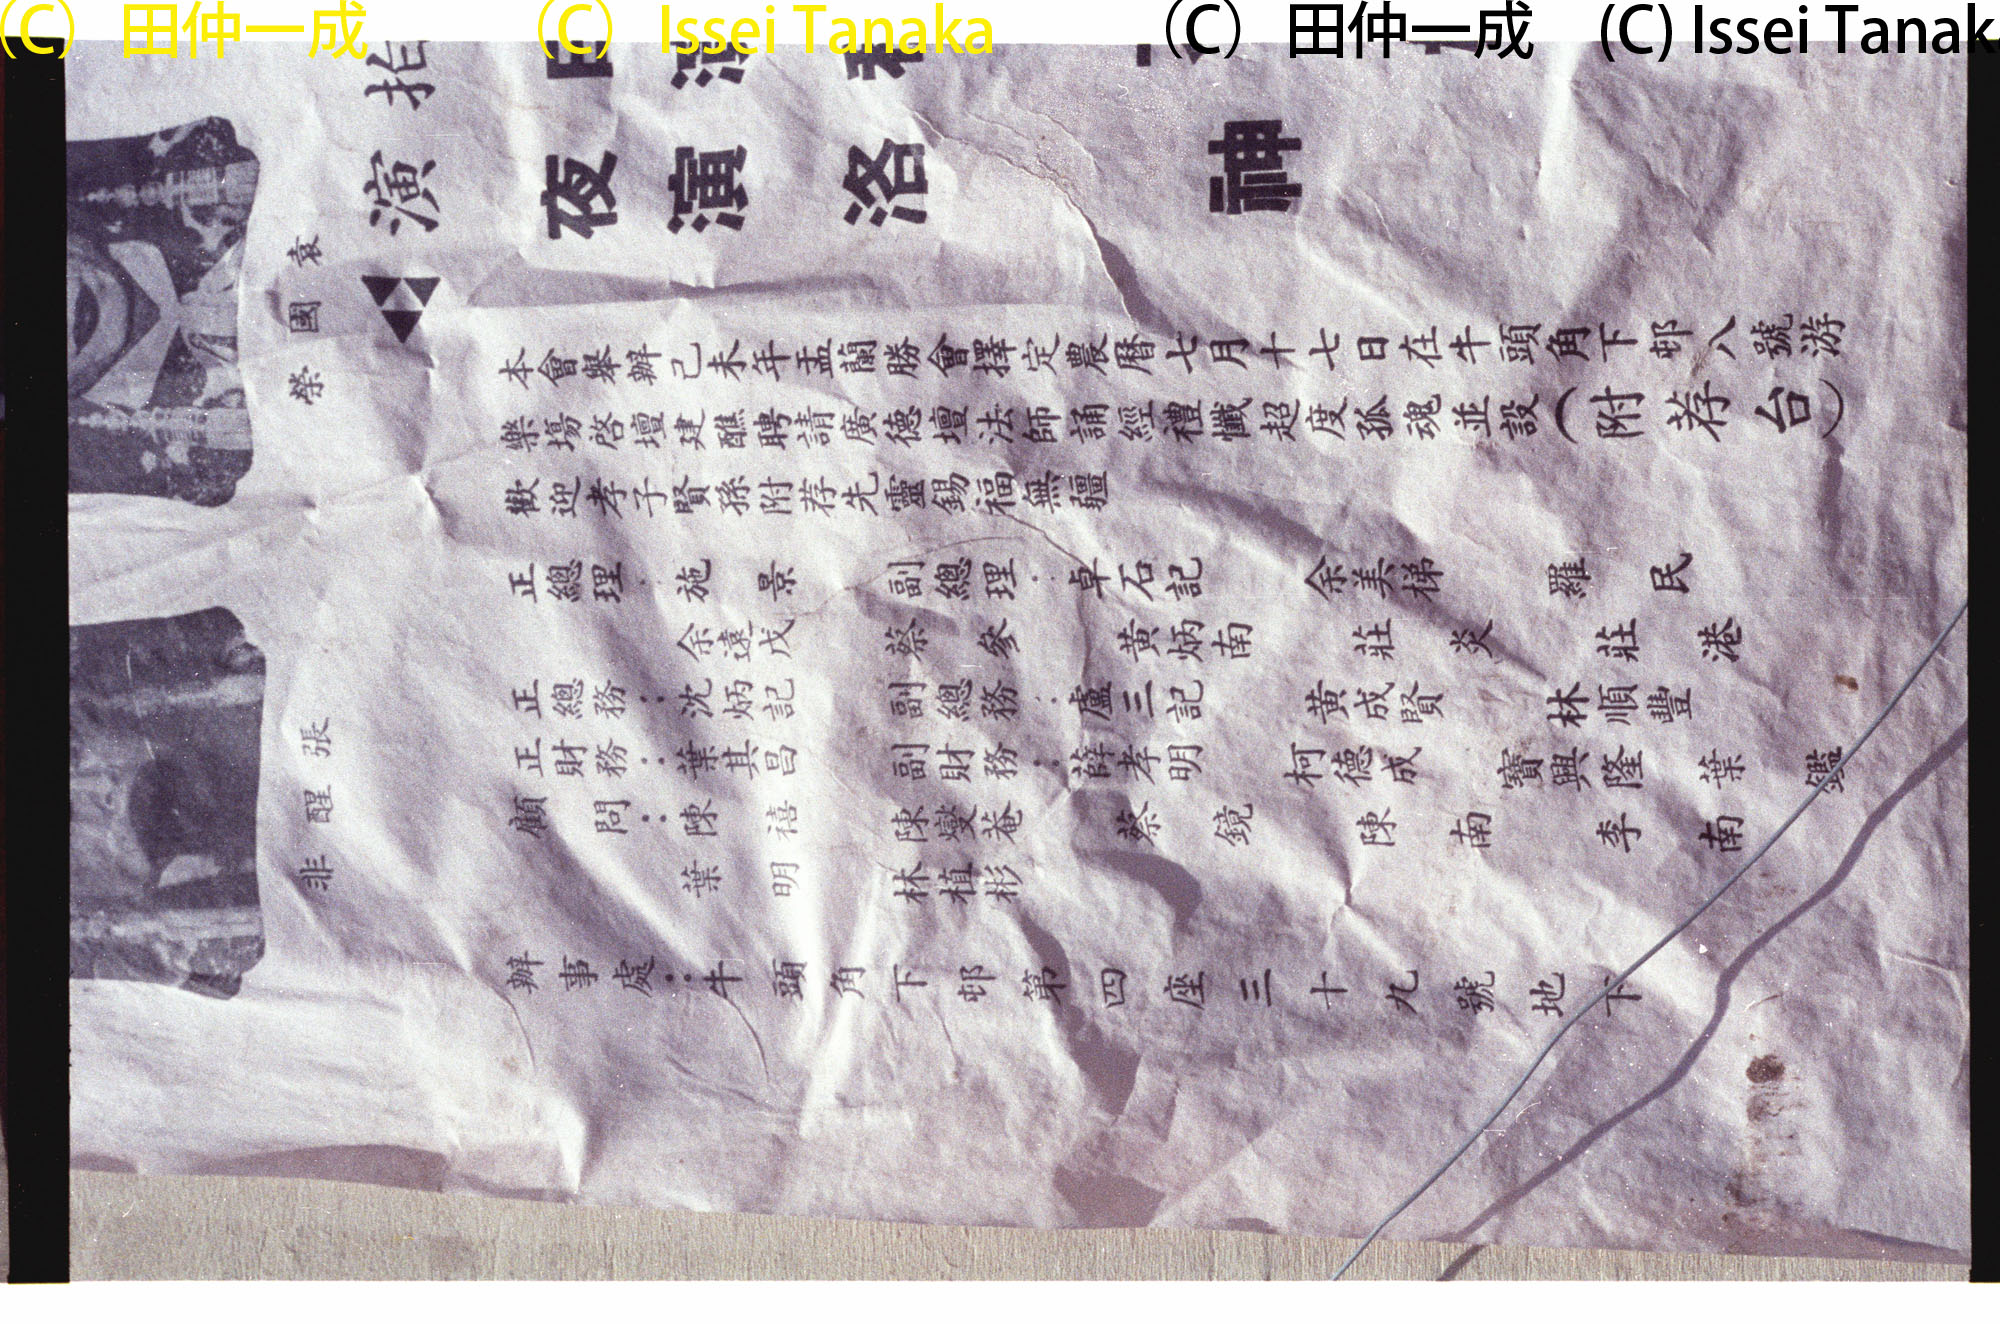 (C) 田仲一成 (C) Issei Tanaka (C) 田仲一成 (C) Issei Tanak
抬
演
夜演洛神
袁國榮
本會舉辦己未年盂蘭勝會擇定農曆七月十七日在牛頭角下邨八號游
樂場啓壇建醮聘請廣德壇法師誦經禮懺超度孤魂並設(附荐台)
歡迎孝子賢孫附荐先靈錫福無疆
正總理:施景 副總理:卓石記 余美梯 羅民
余遠戊 蔡參 黃炳南 莊炎 莊港
正總務:沈炳記 副總務:盧三記 黃成賢 林順豐
正財務:葉其昌 副財務:薛孝明 柯德成 寶興隆 葉鑑
顧問:陳禧 陳燮菴 蔡鏡 陳南 李南
葉明 林植彬
張醒非
辦事處:牛頭角下邨第四座三十九號地下